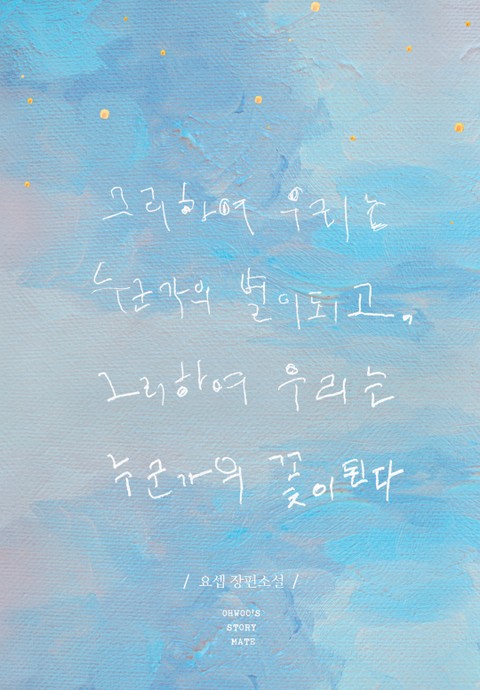 그리하여 우리는
누군가의 별이되고,
그리하여 우리는
누군가의 꽃이된다
/ 요셉 장편소설 /
OHWOO'S
STORY
MATE